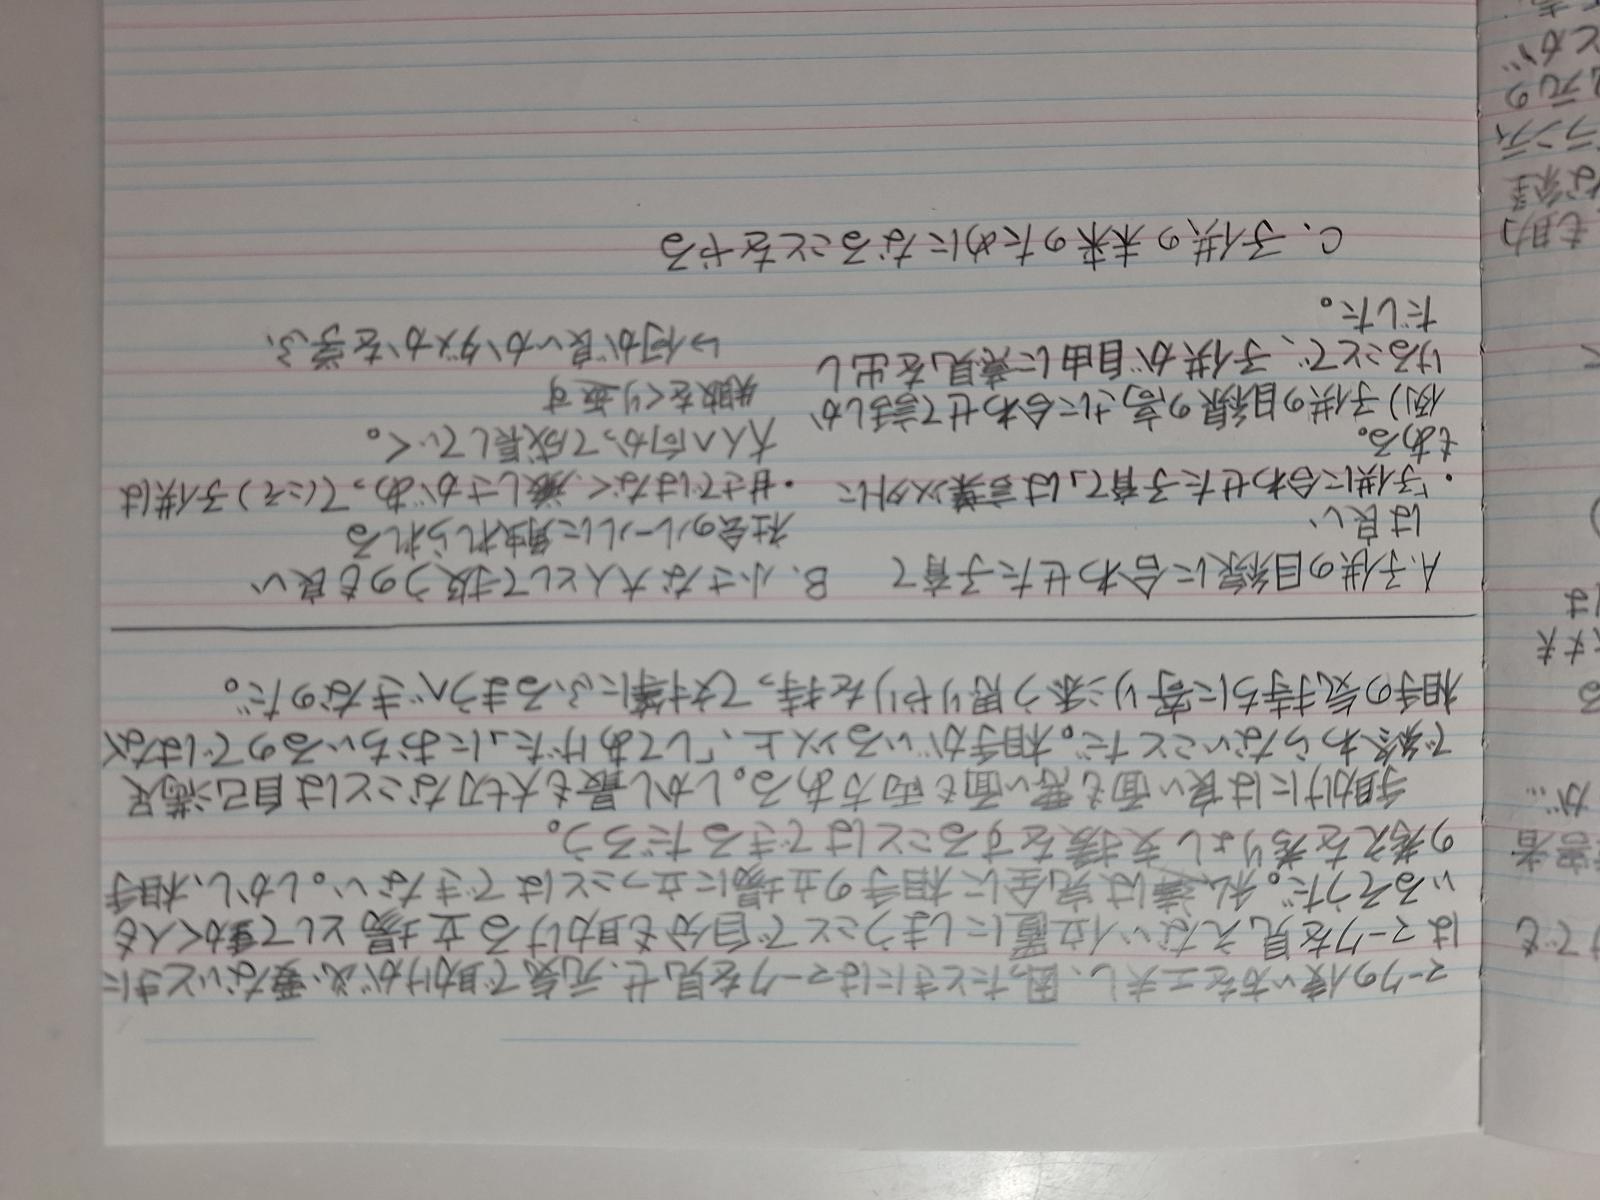 マークの使い方を工夫し、困ったときにはマークを見せ、元気で助けが必要ないときに
はマークを見えない位置にしまうことで自分も助ける立場として動く人も
いるそうだ。私達は完全に相手の立場に立つことはできない。しかし、相手
の考えを考りょし支援をすることはできるだろう。
手助けには良い面も悪い面も両方ある。しかし最も大切なことは自己満足
で終わらないことだ。相手がいる以上、「してあげた」におちいるのではなく
相手の気持ちに寄り添う思りやりを持って対等にふるまうべきなのだ。
A.子供の目線に合わせた子育て
は良い
・「子供に合わせた子育て」は言葉以外に
もある。
例)子供の目線の高さに合わせて話しか
けることで、子供が自由に意見を出し
だした。
B. 小さな大人として扱うのも良い
社会のルールに触れられる
・甘さではなく厳しさがあってこそ)子供は
大人へ向かって成長していく。
失敗をくり返す
↳何が良いかダメかを学ぶ
C. 子供の未来のためになることをやる